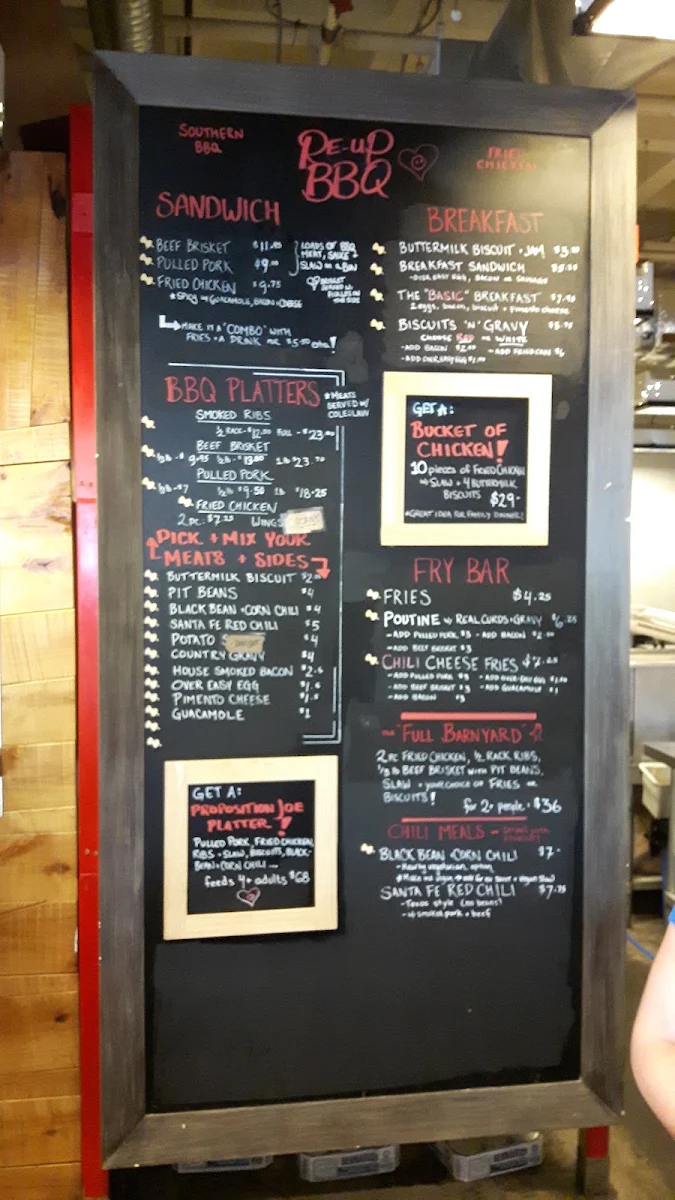 SOUTHERN
BBQ
RE-UP
BBQ
FRIED
CHICKEN
SANDWICH
BEEF BRISKET $11.25
PULLED PORK $9.00
FRIED CHICKEN $9.75
* SPICY W/ GUACAMOLE, BACON + CHEESE
} LOADS OF BBQ
MEAT, SAUCE +
SLAW ON A BUN
MAKE IT A "COMBO" WITH
FRIES + A DRINK FOR $5.50 extra!
BBQ PLATTERS
* MEATS
SERVED W/
COLESLAW
SMOKED RIBS
½ RACK - $12.50 FULL - $23.00
BEEF BRISKET
9.95 ½LB - $13.00 1LB $23.70
PULLED PORK
$7 ½LB $9.50 1LB $18.25
FRIED CHICKEN
2 PC. $7.25 WINGS
PICK + MIX YOUR
MEATS + SIDES
BUTTERMILK BISCUIT $2.00
PIT BEANS $4
BLACK BEAN + CORN CHILI $4
SANTA FE RED CHILI $5
POTATO $4
COUNTRY GRAVY $4
HOUSE SMOKED BACON $2.5
OVER EASY EGG $1.5
PIMENTO CHEESE $1.5
GUACAMOLE $1
GET A:
PROPOSITION JOE
PLATTER!
PULLED PORK, FRIED CHICKEN,
RIBS + SLAW, BISCUITS, BLACK-
BEAN + CORN CHILI...
feeds 4+ adults $68
BREAKFAST
BUTTERMILK BISCUIT + JAM $3.00
BREAKFAST SANDWICH $5.50
- OVER EASY EGG, BACON or SAUSAGE
THE "BASIC" BREAKFAST $7.50
2 eggs, bacon, biscuit + pimento cheese
BISCUITS 'N' GRAVY $5.75
CHOOSE RED or WHITE
- ADD BACON $2.00 - ADD FRIED CHKN $6
- ADD OVER EASY EGG $1.00
GET A:
BUCKET OF
CHICKEN!
10 pieces of FRIED CHICKEN
W/ SLAW + 4 BUTTERMILK
BISCUITS $29-
* GREAT IDEA FOR FAMILY DINNER!
FRY BAR
FRIES $4.25
POUTINE W/ REAL CURDS + GRAVY $6.25
- ADD PULLED PORK $3 - ADD BACON $2.00
- ADD BEEF BRISKET $3
CHILI CHEESE FRIES $7.25
- ADD PULLED PORK $3 - ADD OVER-EASY EGG $1.00
- ADD BEEF BRISKET $3 - ADD GUACAMOLE $1
- ADD BACON $3
THE "FULL BARNYARD"
2 PC FRIED CHICKEN, ½ RACK RIBS,
⅓ lb BEEF BRISKET WITH PIT BEANS,
SLAW + YOUR CHOICE OF FRIES OR
BISCUITS!
for 2+ people - $36
CHILI MEALS -
BLACK BEAN + CORN CHILI $7-
- Hearty vegetarian option
SANTA FE RED CHILI $7.75
- Texas style (no beans)
- w/ smoked pork + beef